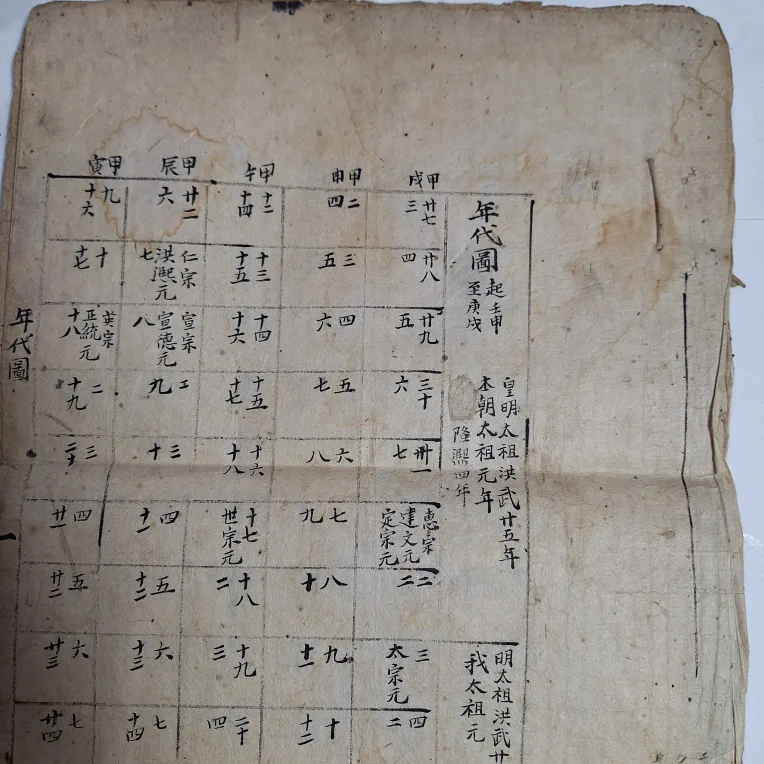 年代圖
起壬申
至庚戌
皇明太祖洪武廿五年
本朝太祖元年
隆熙四年
明太祖洪武廿
我太祖元
甲戌
廿七
三
廿八
四
廿九
五
三十
六
卅一
七
惠宗
建文元
定宗元
二
二
三
太宗元
四
二
甲申
二
四
三
五
四
六
五
七
六
八
七
九
八
十
九
十一
十
十二
甲午
十二
十四
十三
十五
十四
十六
十五
十七
十六
十八
十七
世宗元
十八
二
十九
三
二十
四
甲辰
廿二
六
仁宗
洪熙元
七
宣宗
宣德元
八
二
九
三
十
四
十一
五
十二
六
十三
七
十四
甲寅
九
十六
十
十七
英宗
正統元
十八
二
十九
三
二十
四
廿一
五
廿二
六
廿三
七
廿四
年代圖